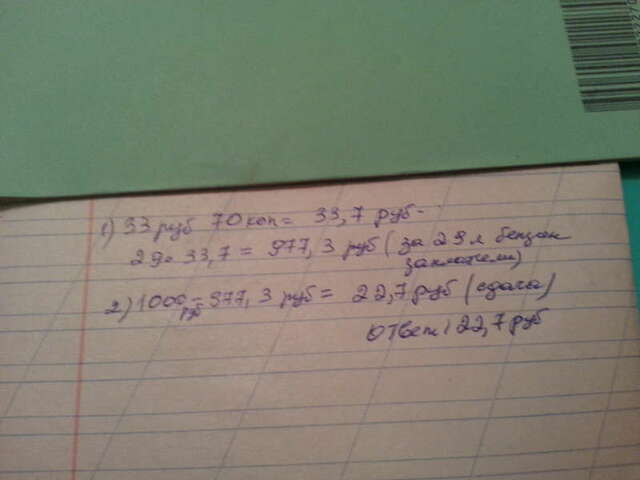 1) 33 руб 70 коп = 33,7 руб -
29 · 33,7 = 977,3 руб (за 29 л бензин
заплатели)
2) 1000 руб - 977,3 руб = 22,7 руб (сдача)
Ответ: 22,7 руб